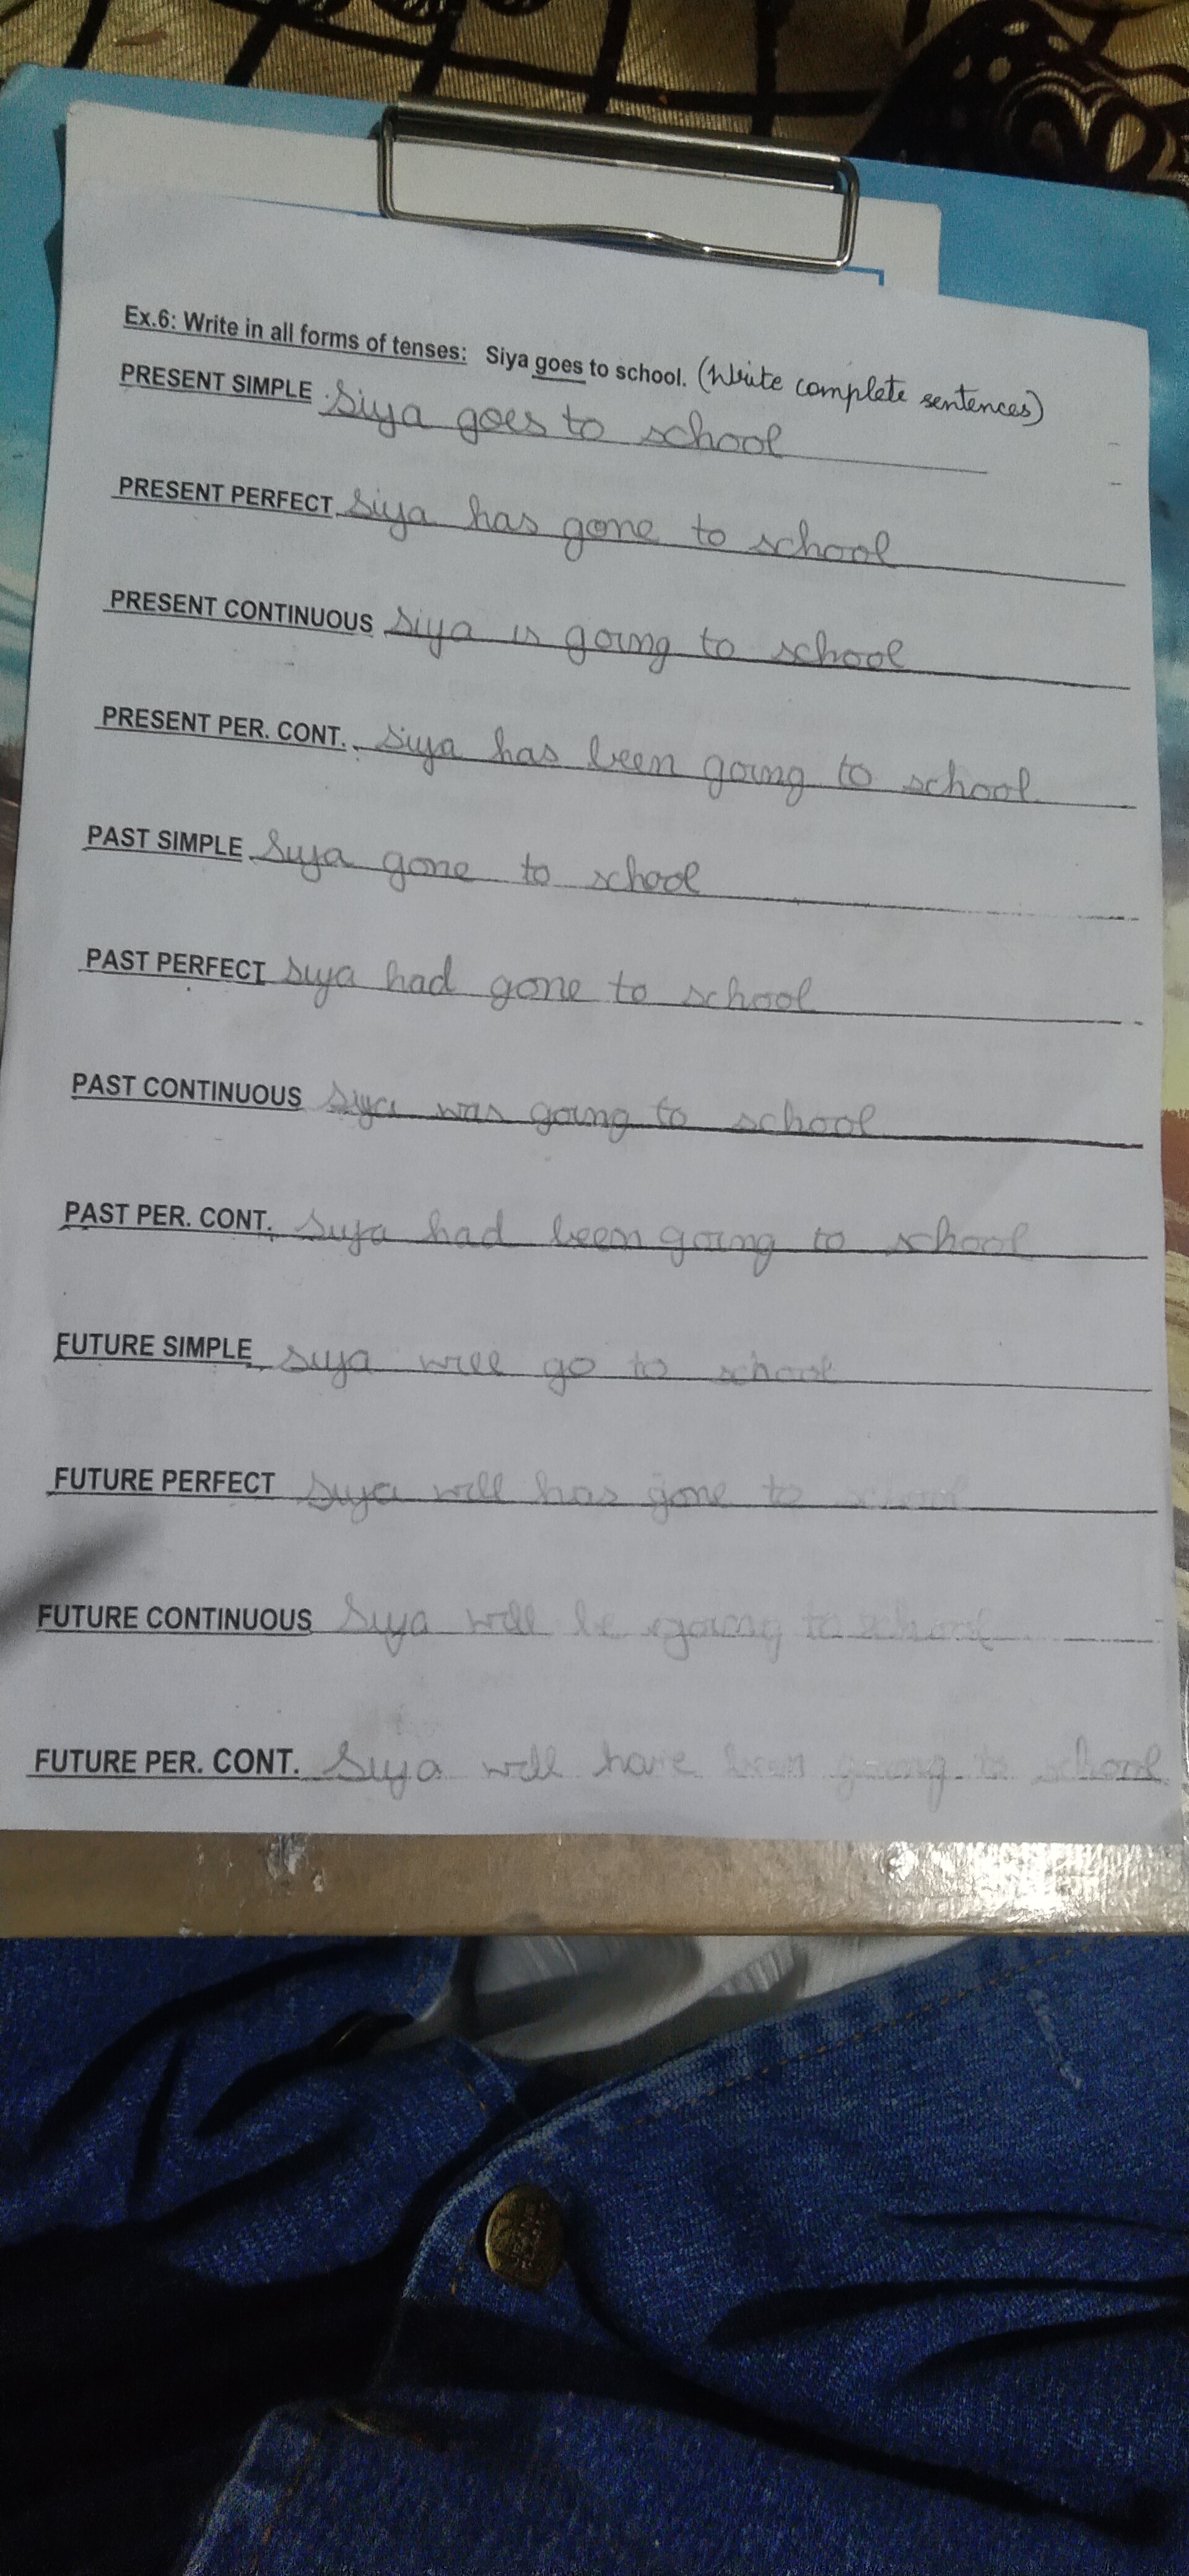 Ex.6: Write in all forms of tenses: Siya goes to school. (Write complete sentences)
PRESENT SIMPLE Siya goes to school
PRESENT PERFECT Siya has gone to school
PRESENT CONTINUOUS Siya is going to school
PRESENT PER. CONT. Siya has been going to school
PAST SIMPLE Siya gone to school
PAST PERFECT Siya had gone to school
PAST CONTINUOUS Siya was going to school
PAST PER. CONT. Siya had been going to school
FUTURE SIMPLE Siya will go to school
FUTURE PERFECT Siya will has gone to school
FUTURE CONTINUOUS Siya will be going to school
FUTURE PER. CONT. Siya will have been going to school